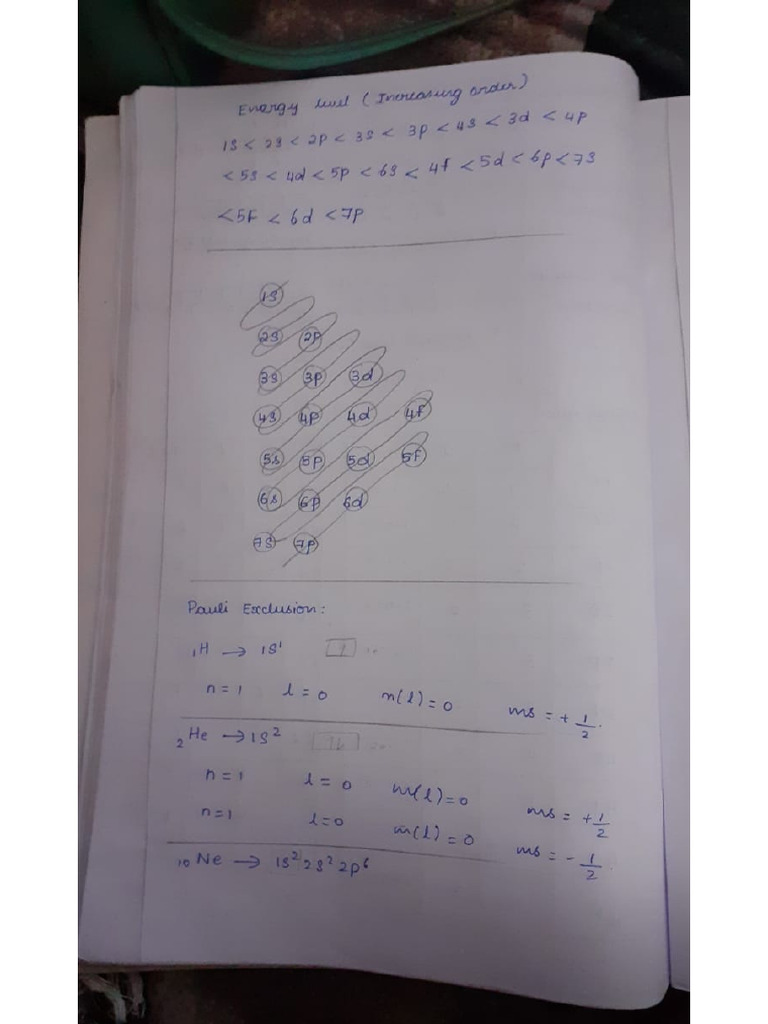 Energy level (Increasing order)
1s < 2s < 2p < 3s < 3p < 4s < 3d < 4p
< 5s < 4d < 5p < 6s < 4f < 5d < 6p < 7s
< 5f < 6d < 7p
1s
2s 2p
3s 3p 3d
4s 4p 4d 4f
5s 5p 5d 5f
6s 6p 6d
7s 7p
Pauli Exclusion:
₁H → 1s¹ 1
n = 1 l = 0 m(l) = 0 ms = + 1/2.
₂He → 1s² 1l
n = 1 l = 0 m(l) = 0 ms = + 1/2
n = 1 l = 0 m(l) = 0 ms = - 1/2
₁₀Ne → 1s² 2s² 2p⁶